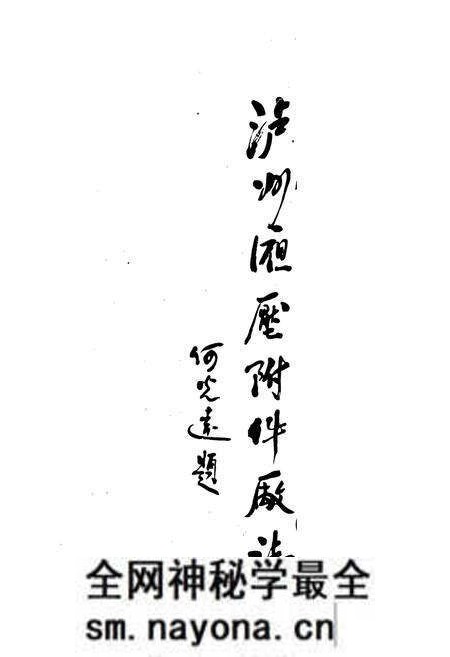 泸州液壓附件廠
何光遠題
全网神秘学最全
sm.nayona.cn